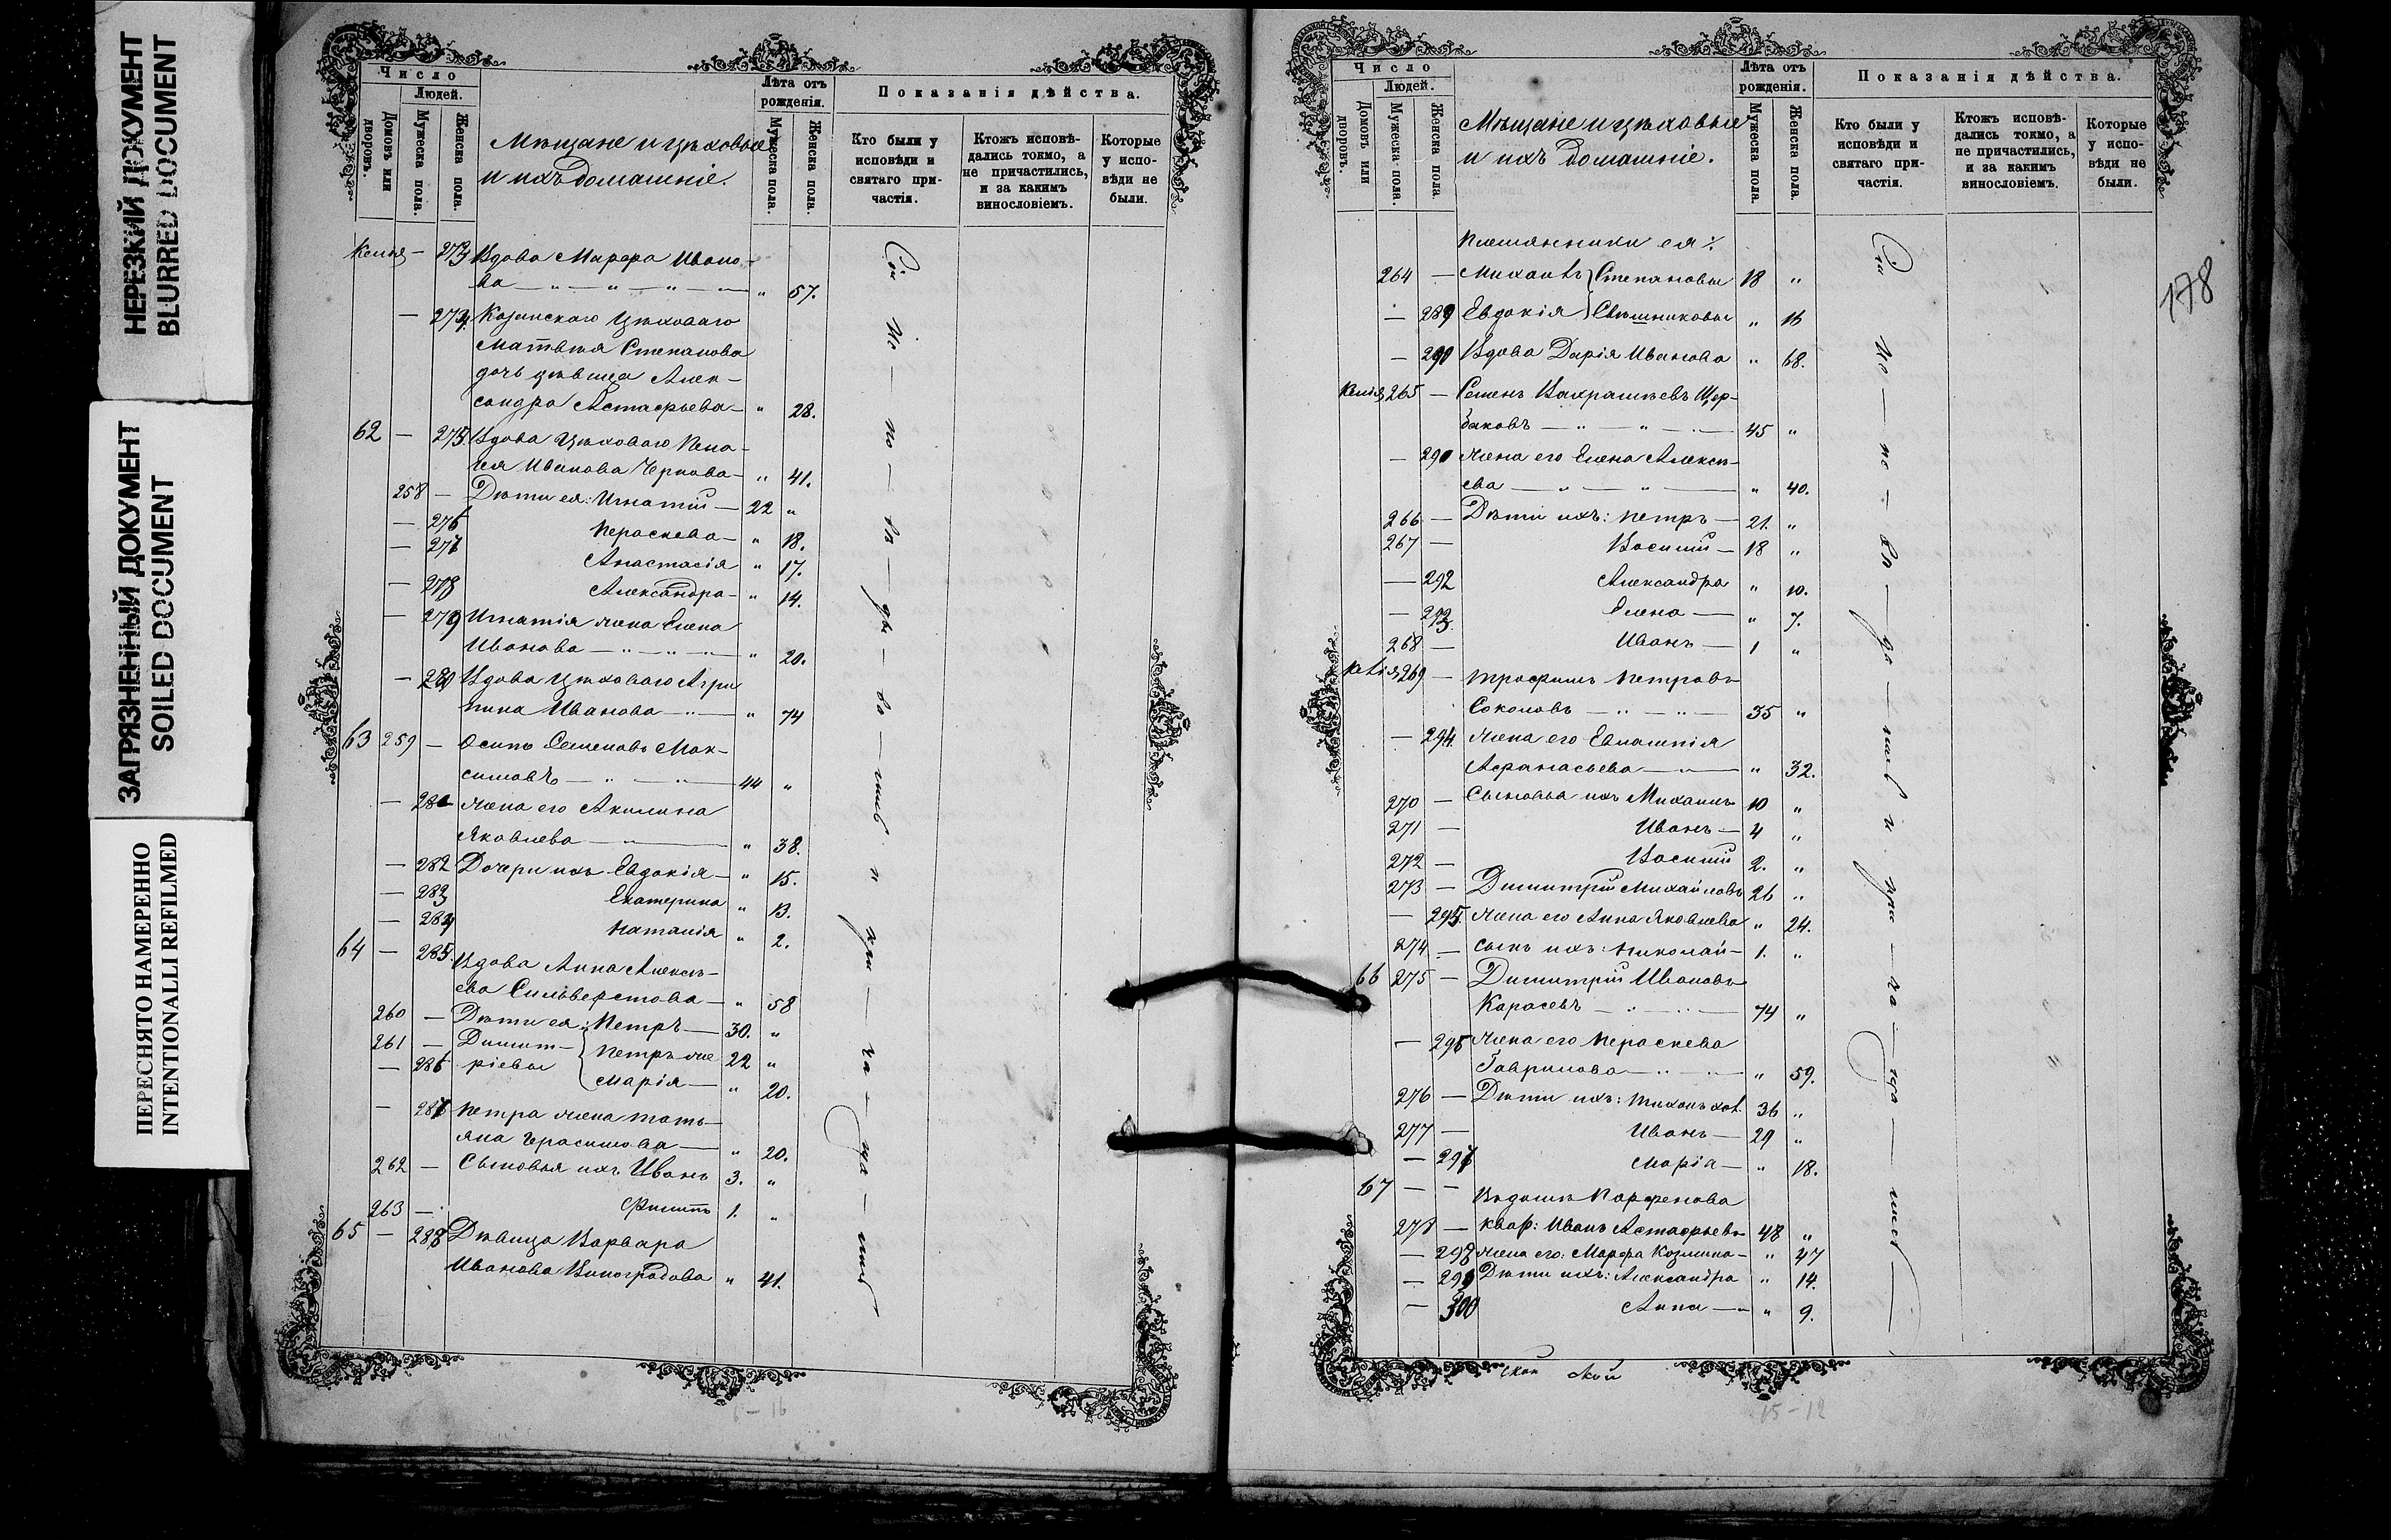 НЕРЕЗКИЙ ДОКУМЕНТ
BLURRED DOCUMENT
ЗАГРЯЗНЕННЫЙ ДОКУМЕНТ
SOILED DOCUMENT
ПЕРЕСНЯТО НАМЕРЕННО
INTENTIONALLI REFILMED
Число
Людей.
Домовъ или дворовъ.
Мужеска пола.
Женска пола.
Мѣщане и цѣховые
и ихъ домашніе.
Лѣта отъ рожденія.
Мужеска пола.
Женска пола.
Показанія дѣйства.
Кто были у исповѣди и святаго причастія.
Ктожъ исповѣдались токмо, а не причастились, и за какимъ винословіемъ.
Которые у исповѣди не были.
Келья — 273 Вдова Марфа Ивано-
ва — " — " — " — " 57.
— 274 Казанскаго Цѣховаго
Матвѣя Степанова
дочь дѣвица Алек-
сандра Астафьева — " 28.
62 — 275 Вдова Цѣховаго Пела-
гея Иванова Чернова — " 41.
258 — Дѣти ея: Игнатій — 22 "
— 276 Параскева — " 18.
— 277 Анастасія " 17.
— 278 Александра — " 14.
— 279 Игнатія жена Елена
Иванова — " — " — " " 20.
— 280 Вдова цѣховаго Агри
пина Иванова — " — " 74
63 259 — Осипъ Семеновъ Мак-
симовъ — " — " — 44 "
— 281 Жена его Акилина
Яковлева — " — " 38.
— 282 Дочери ихъ Евдокія — " 15.
— 283 Екатерина " 13.
— 284 Наталія " 2.
64 — 285. Вдова Анна Алексѣ-
ева Сильверстова — " 58
260 — Дѣти ея: Петръ — 30. "
261 — Димит- Петръ же 22 "
— 286 ріевы Марія — " 20.
— 287 Петра жена Тать-
яна Герасимова — " 20.
262 — Сыновья ихъ Иванъ 3. "
263 — Филиппъ 1. "
65 — 288 Дѣвица Варвара
Иванова Виноградова " 41.
6 — 16
Число
Людей.
Домовъ или дворовъ.
Мужеска пола.
Женска пола.
Мѣщане и цѣховые
и ихъ домашніе.
Лѣта отъ рожденія.
Мужеска пола.
Женска пола.
Показанія дѣйства.
Кто были у исповѣди и святаго причастія.
Ктожъ исповѣдались токмо, а не причастились, и за какимъ винословіемъ.
Которые у исповѣди не были.
178
Племянники ея:
264 — Михаилъ Степановы 18 "
— 289 Евдокія Свѣшниковы " 16
— 290 Вдова Дарія Иванова " 68.
Келія 265 — Семенъ Вахрамѣевъ Щер-
баковъ — " — " — " — 45 "
— 291 Жена его Елена Алексѣ-
ева — " — " — " 40.
266 — Дѣти ихъ: Петръ — 21. "
267 — Василій — 18 "
— 292 Александра " 10.
— 293. Елена — " 7.
268 — Иванъ — 1 "
Келія 269 — Трофимъ Петровъ
Соколовъ — " — " — 35 "
— 294. Жена его Евлампія
Афанасьева — " — " 32.
270 — Сыновья ихъ Михаилъ 10 "
271 — Иванъ — 4 "
272 — Василій 2. "
273 — Димитрій Михайловъ 26 "
— 295 Жена его Анна Яковлева " 24.
274 — Сынъ ихъ: Николай — 1. "
66 275 — Димитрій Ивановъ
Карасевъ — " — " — 74 "
— 296 Жена его Параскева
Гаврилова — " — " — " 59.
276 — Дѣти ихъ: Тихонъ хол. 36 "
277 — Иванъ — 29 "
— 297 Марія — " 18.
67 — — Парфенова
278 — квар: Иванъ Астафьевъ 48 "
— 298 Жена его: Марфа Козмина — " 47
— 299 Дѣти ихъ: Александра " 14.
— 300 Анна — " 9.
15 — 12